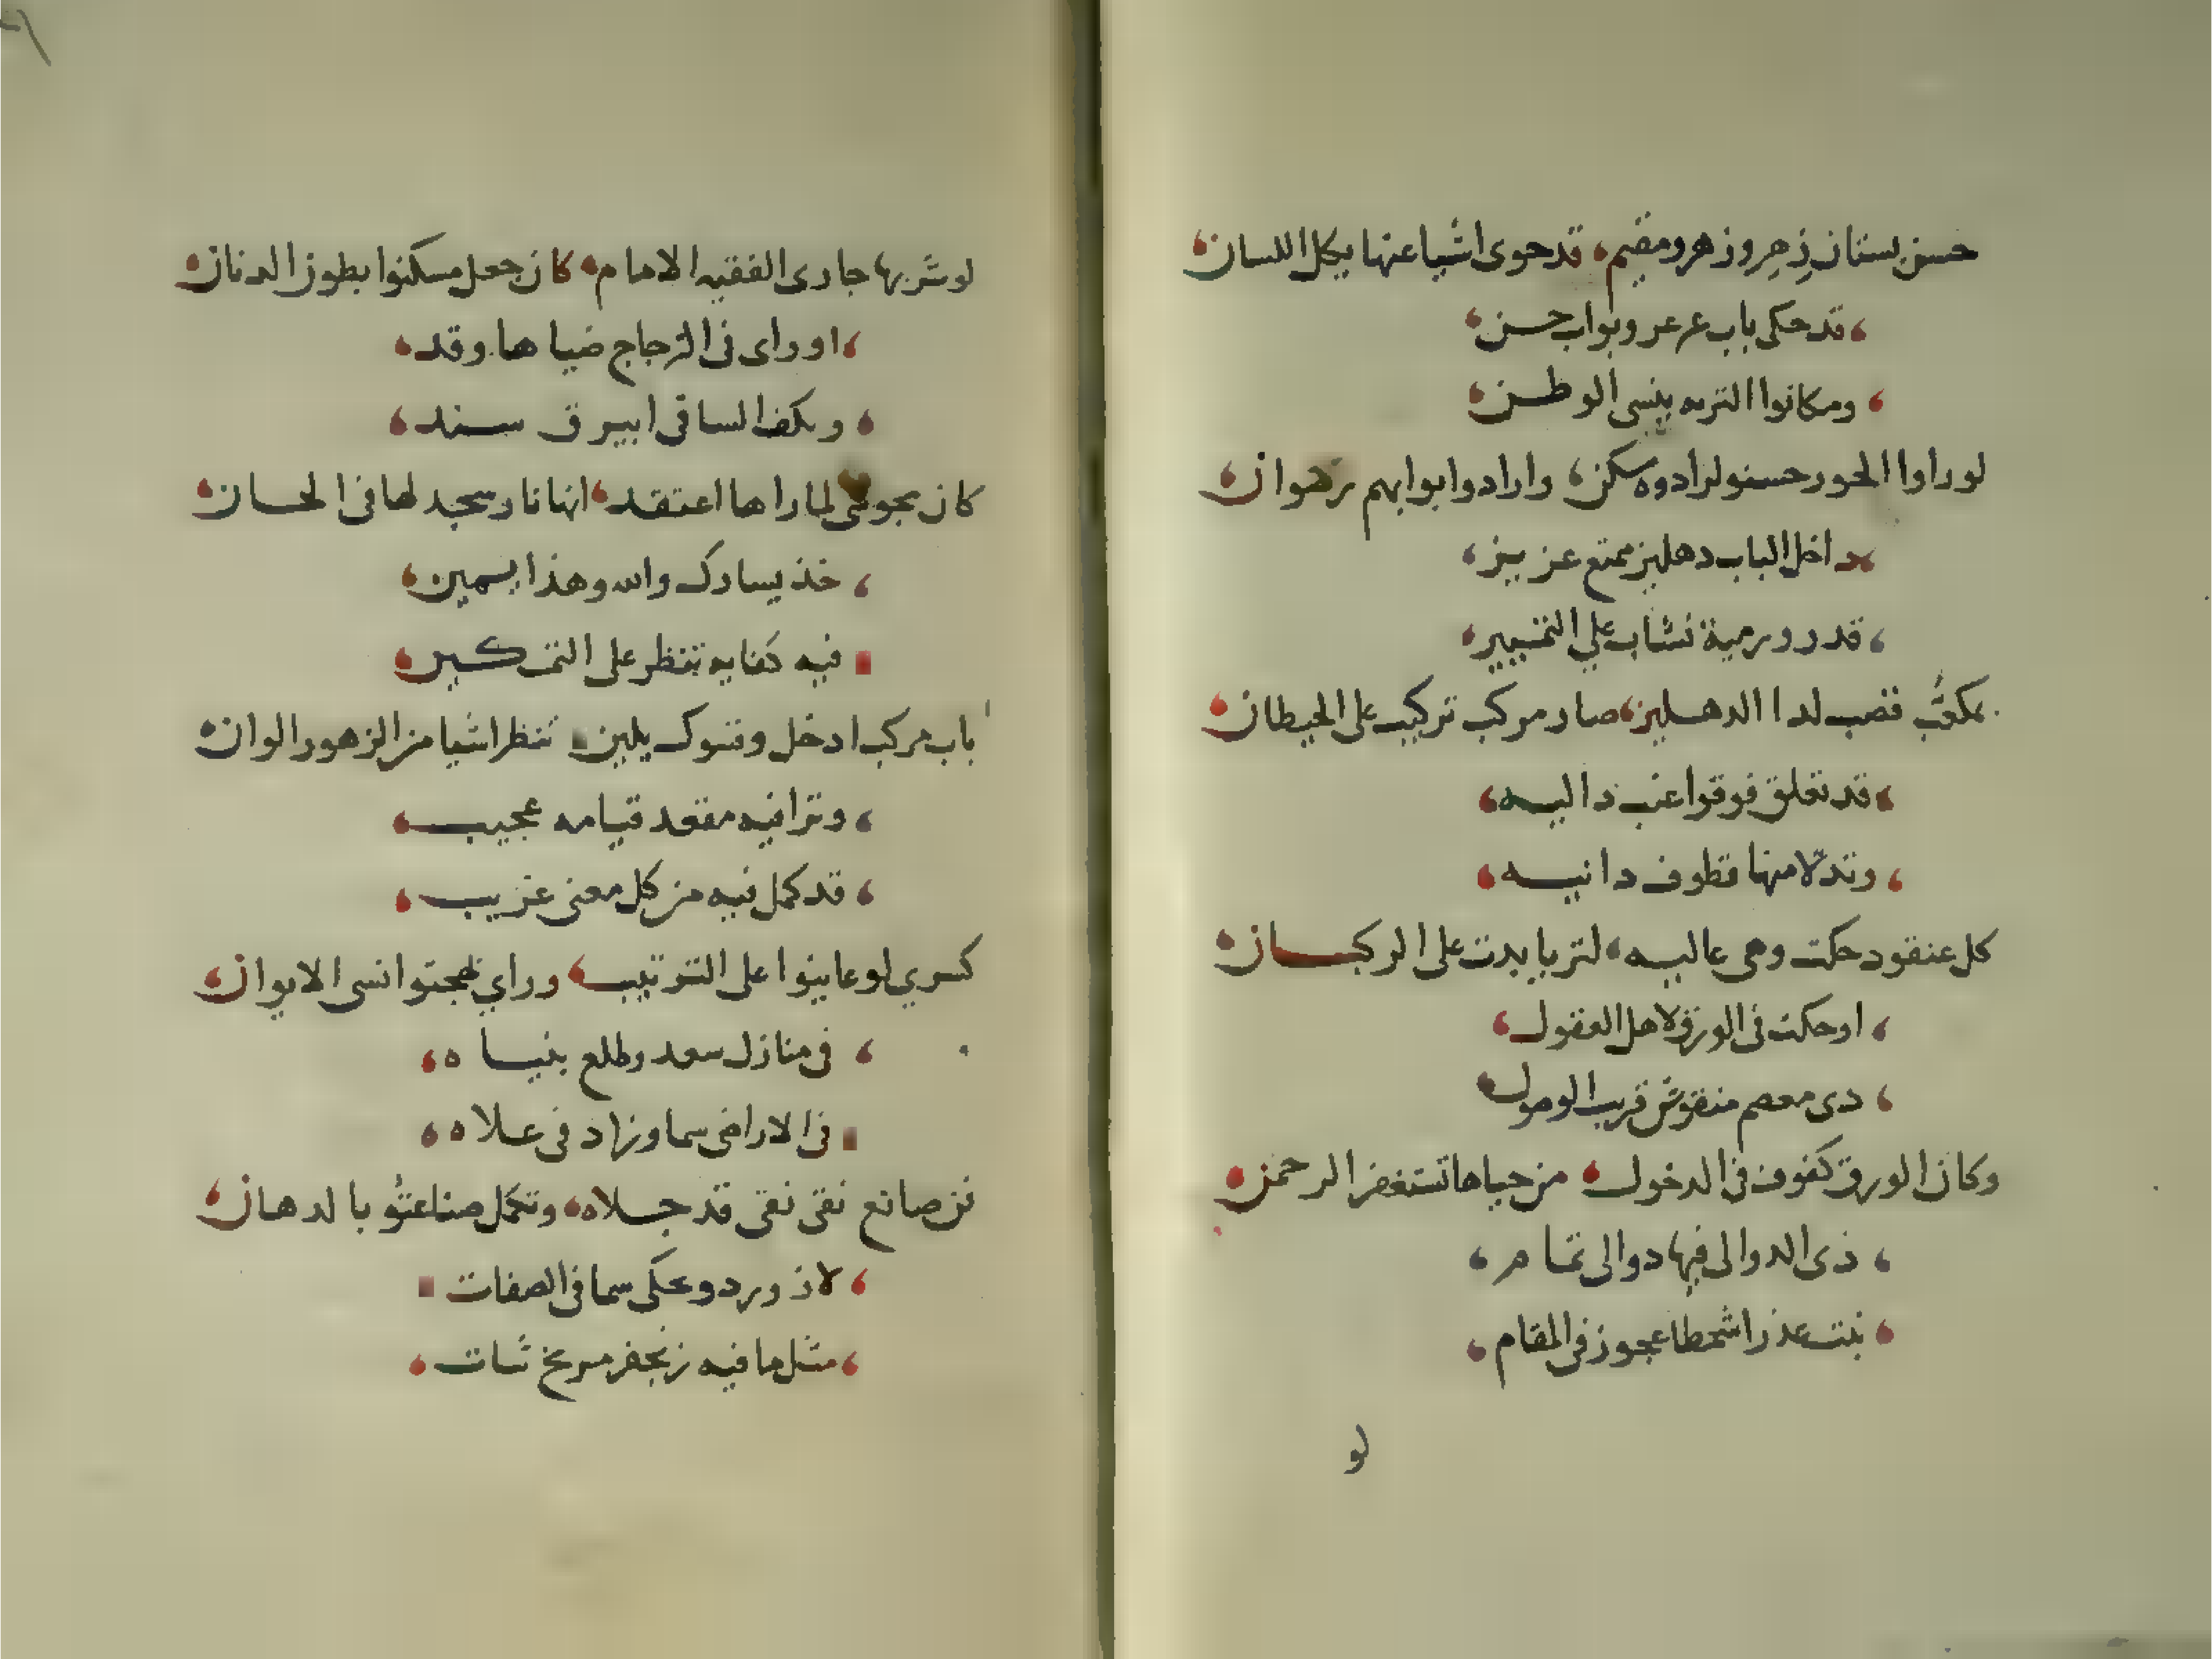 حسن بستان زهر وزهرو مقيم قد حوى اشيا عنها يكل اللسان
قد حكى باب عرعر وبواب حسن
ومكانوا النزه ينسى الوطن
لو راوا الحور حسنو لرادوه سكن وارادوا بوابهم رضوان
داخل الباب دهليز ممتع عزيز
قدرو رمية نشاب على التخبير
قصب لدا الدهليز صار مركب تركيب على الحيطان
قد تعلق فوقوا عنب داليه
وتدلا منها قطوف دانيه
كل عنقود حكت وهى عاليه لثريا بدت على الركبان
او حكت فى الورق لاهل العقول
دى معصم منقوش قريب الوصول
وكان الورق كفوف فى الدخول من حياها تستغفر الرحمن
ذى الدوالى فيها دوالى تمام
بنت عذرا شمطا عجوز فى المقام
لو
لو شربها جارى الفقيه الامام كان جعل مسكنوا بطون الدنان
او راى فى الزجاج ضياها وقد
وبكف الساقى ابيرق سند
كان مجوسى لما راها اعتقد انها نار سجد لها فى الحان
خذ يسارك والله وهذا يمين
فيه كفايه تنظر على التمكين
باب مركب ادخل وشوك يلين تنظر اشيا من الزهور الوان
وترا فيه مقعد قيامه عجيب
قد كمل فيه من كل معنى غريب
كسرى لو عاينوا على الترتيب وراى بهجتو انسى الايوان
فى منازل سعد وطلع بنياه
فى الاراضى سما وزاد فى علاه
من صانع نقى نقى قد جلاه وتكمل صناعتو بالدهان
لازوردو يحكى سما فى الصفات
مثل ما فيه زنجفر مريخ ثبات